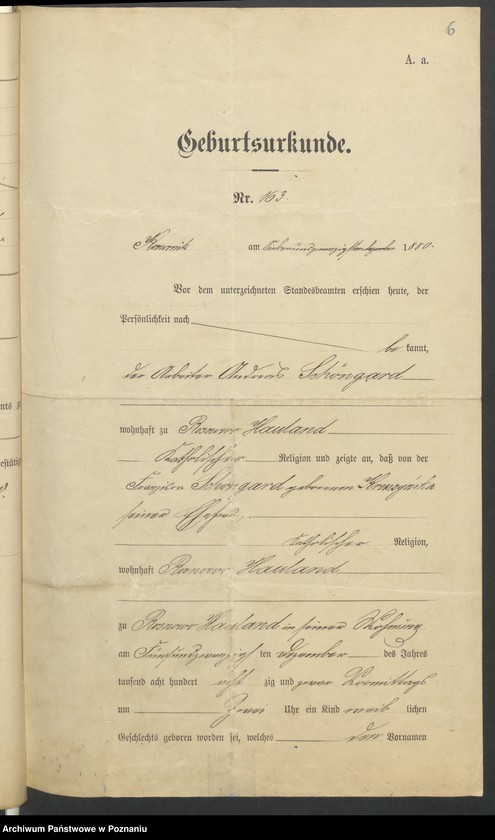 6
A. a.
Geburtsurkunde.
Nr. 163.
am Siebenundzwanzigsten Dezember 1880.
Vor dem unterzeichneten Standesbeamten erschien heute, der
Persönlichkeit nach
be kannt,
der Arbeiter Andreas Schöngard
wohnhaft zu Hauland
Katholischer Religion und zeigte an, daß von der
Schöngard geborenen
seiner Ehefrau,
Katholischer Religion,
wohnhaft Hauland
zu Hauland in seiner Wohnung
am Fünfundzwanzig ten Dezember des Jahres
tausend acht hundert acht zig und zwar Vormittags
um Zwei Uhr ein Kind weib lichen
Geschlechts geboren worden sei, welches den Vornamen
Archiwum Państwowe w Poznaniu